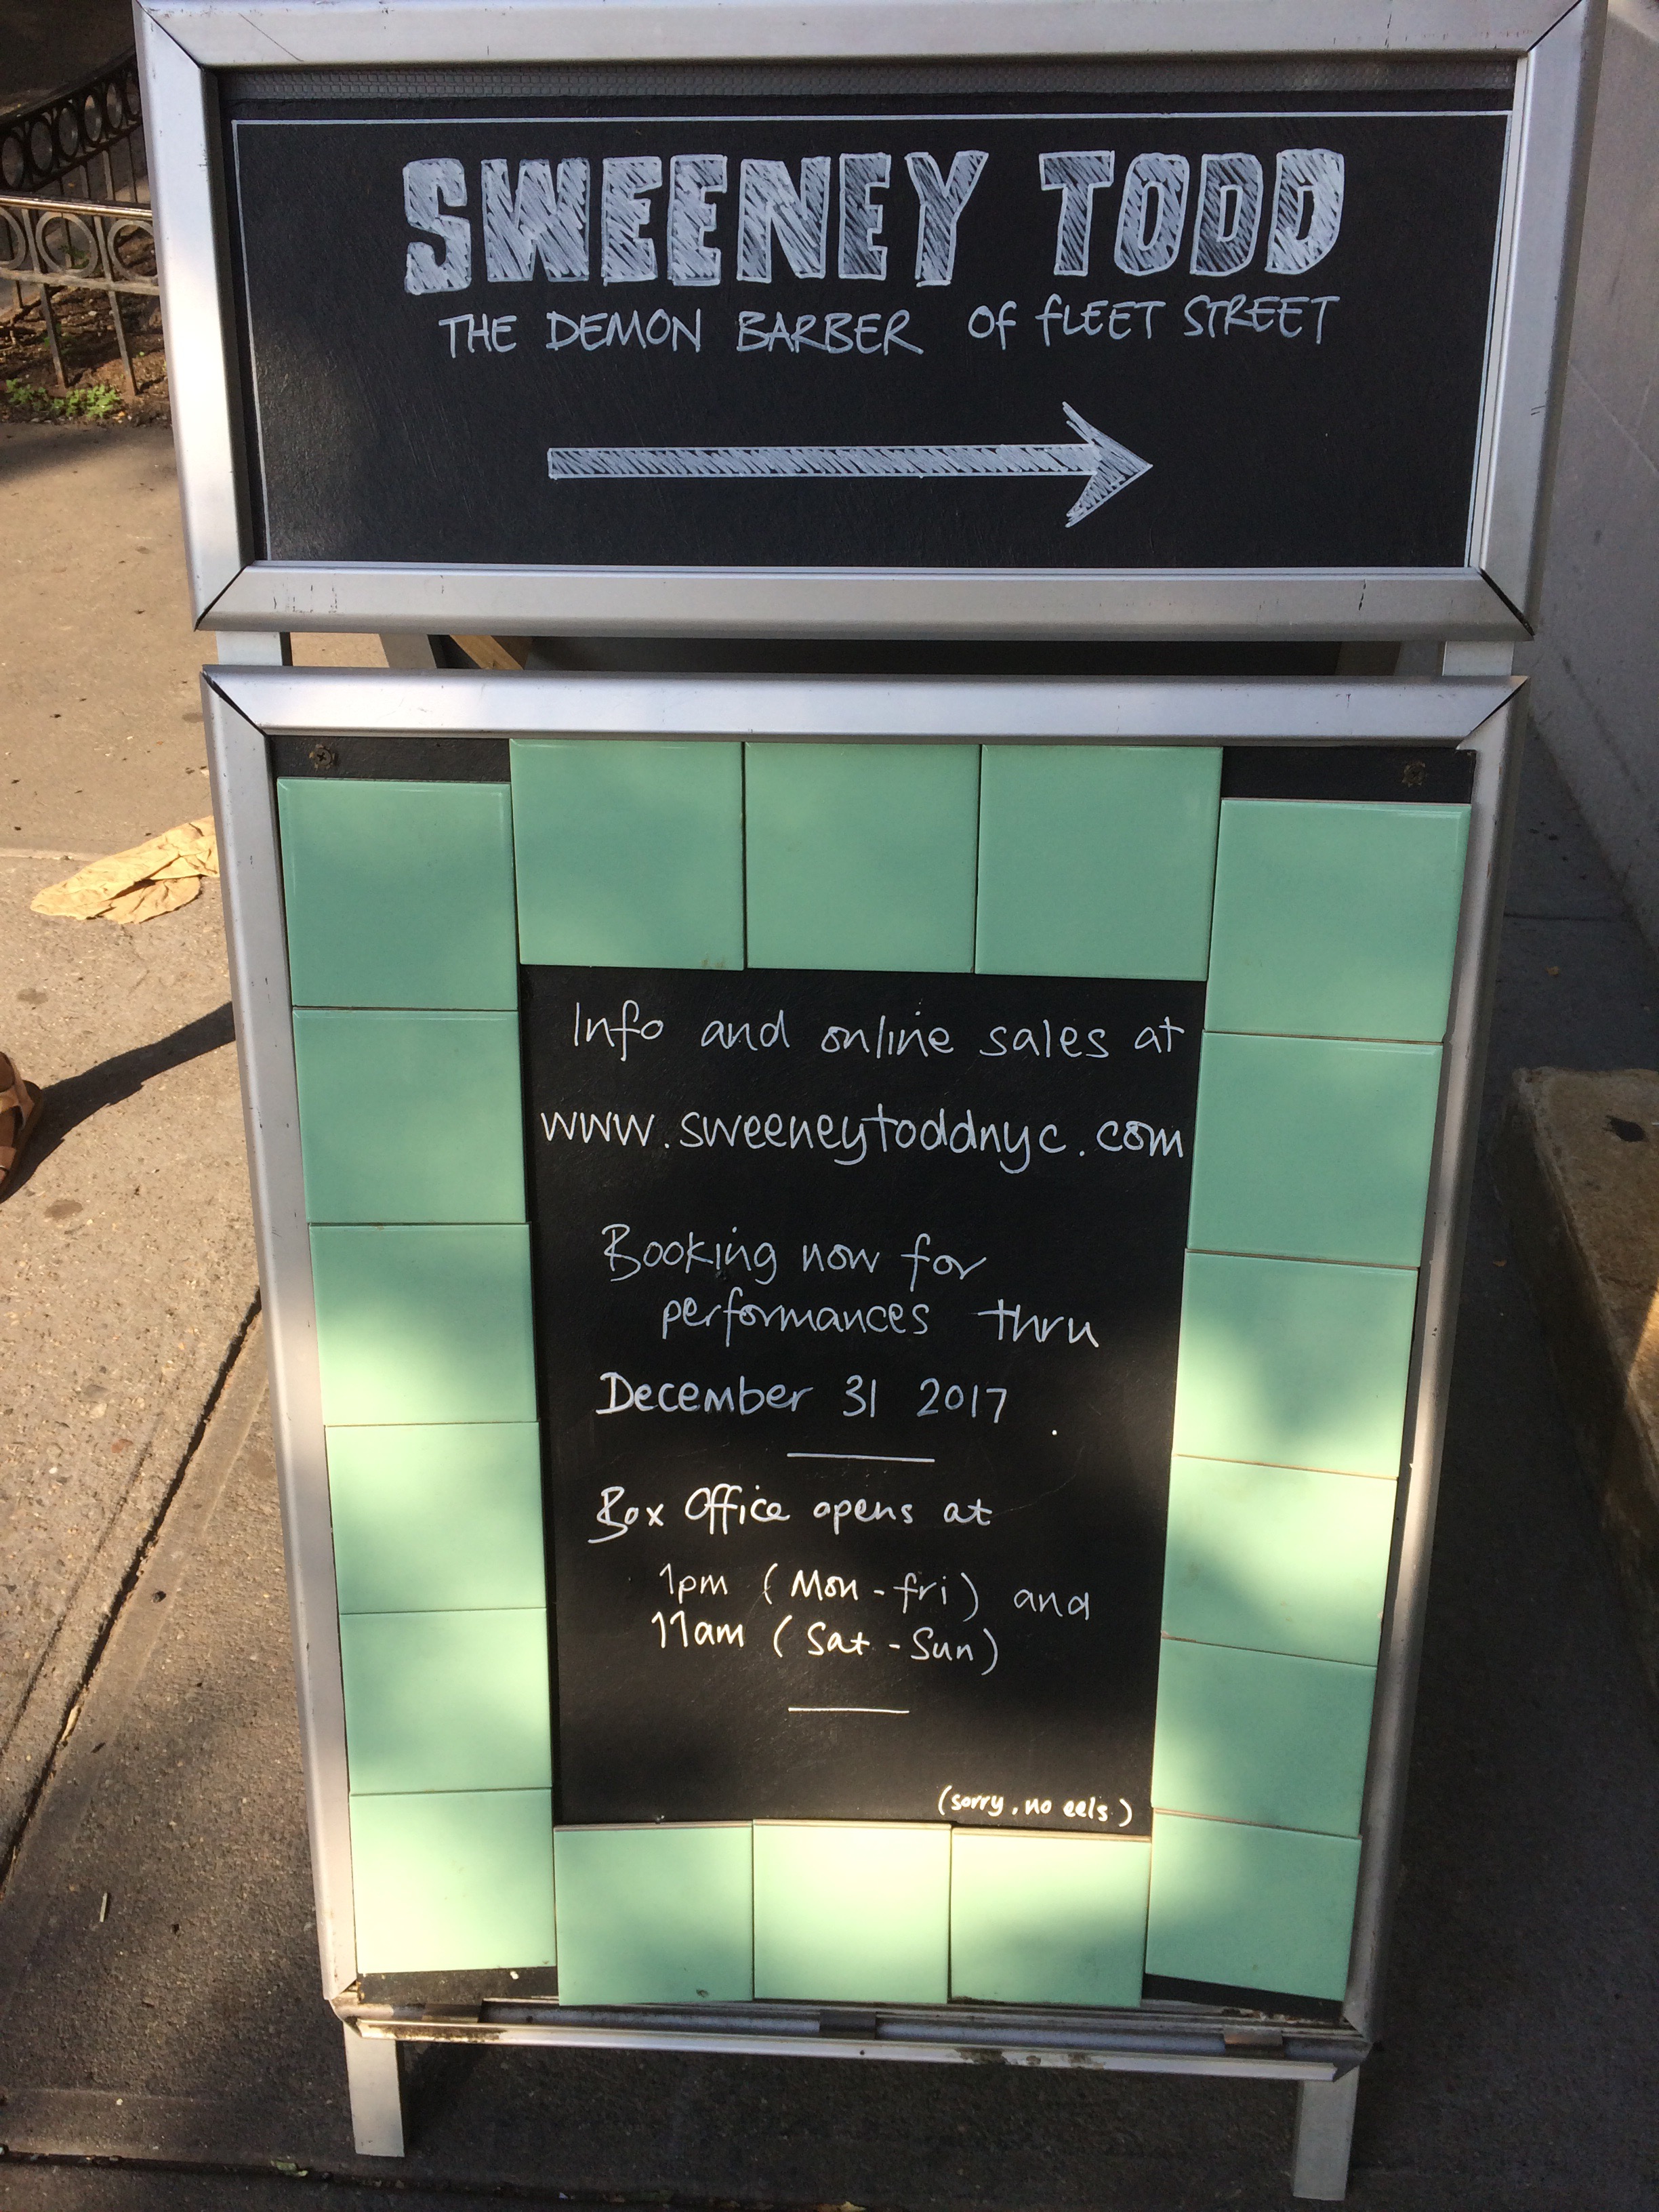 SWEENEY TODD
THE DEMON BARBER OF FLEET STREET
Info and online sales at
www.sweeneytoddnyc.com
Booking now for
performances thru
December 31 2017
Box Office opens at
1pm (Mon-fri) and
11am (Sat-Sun)
(sorry, no eels)